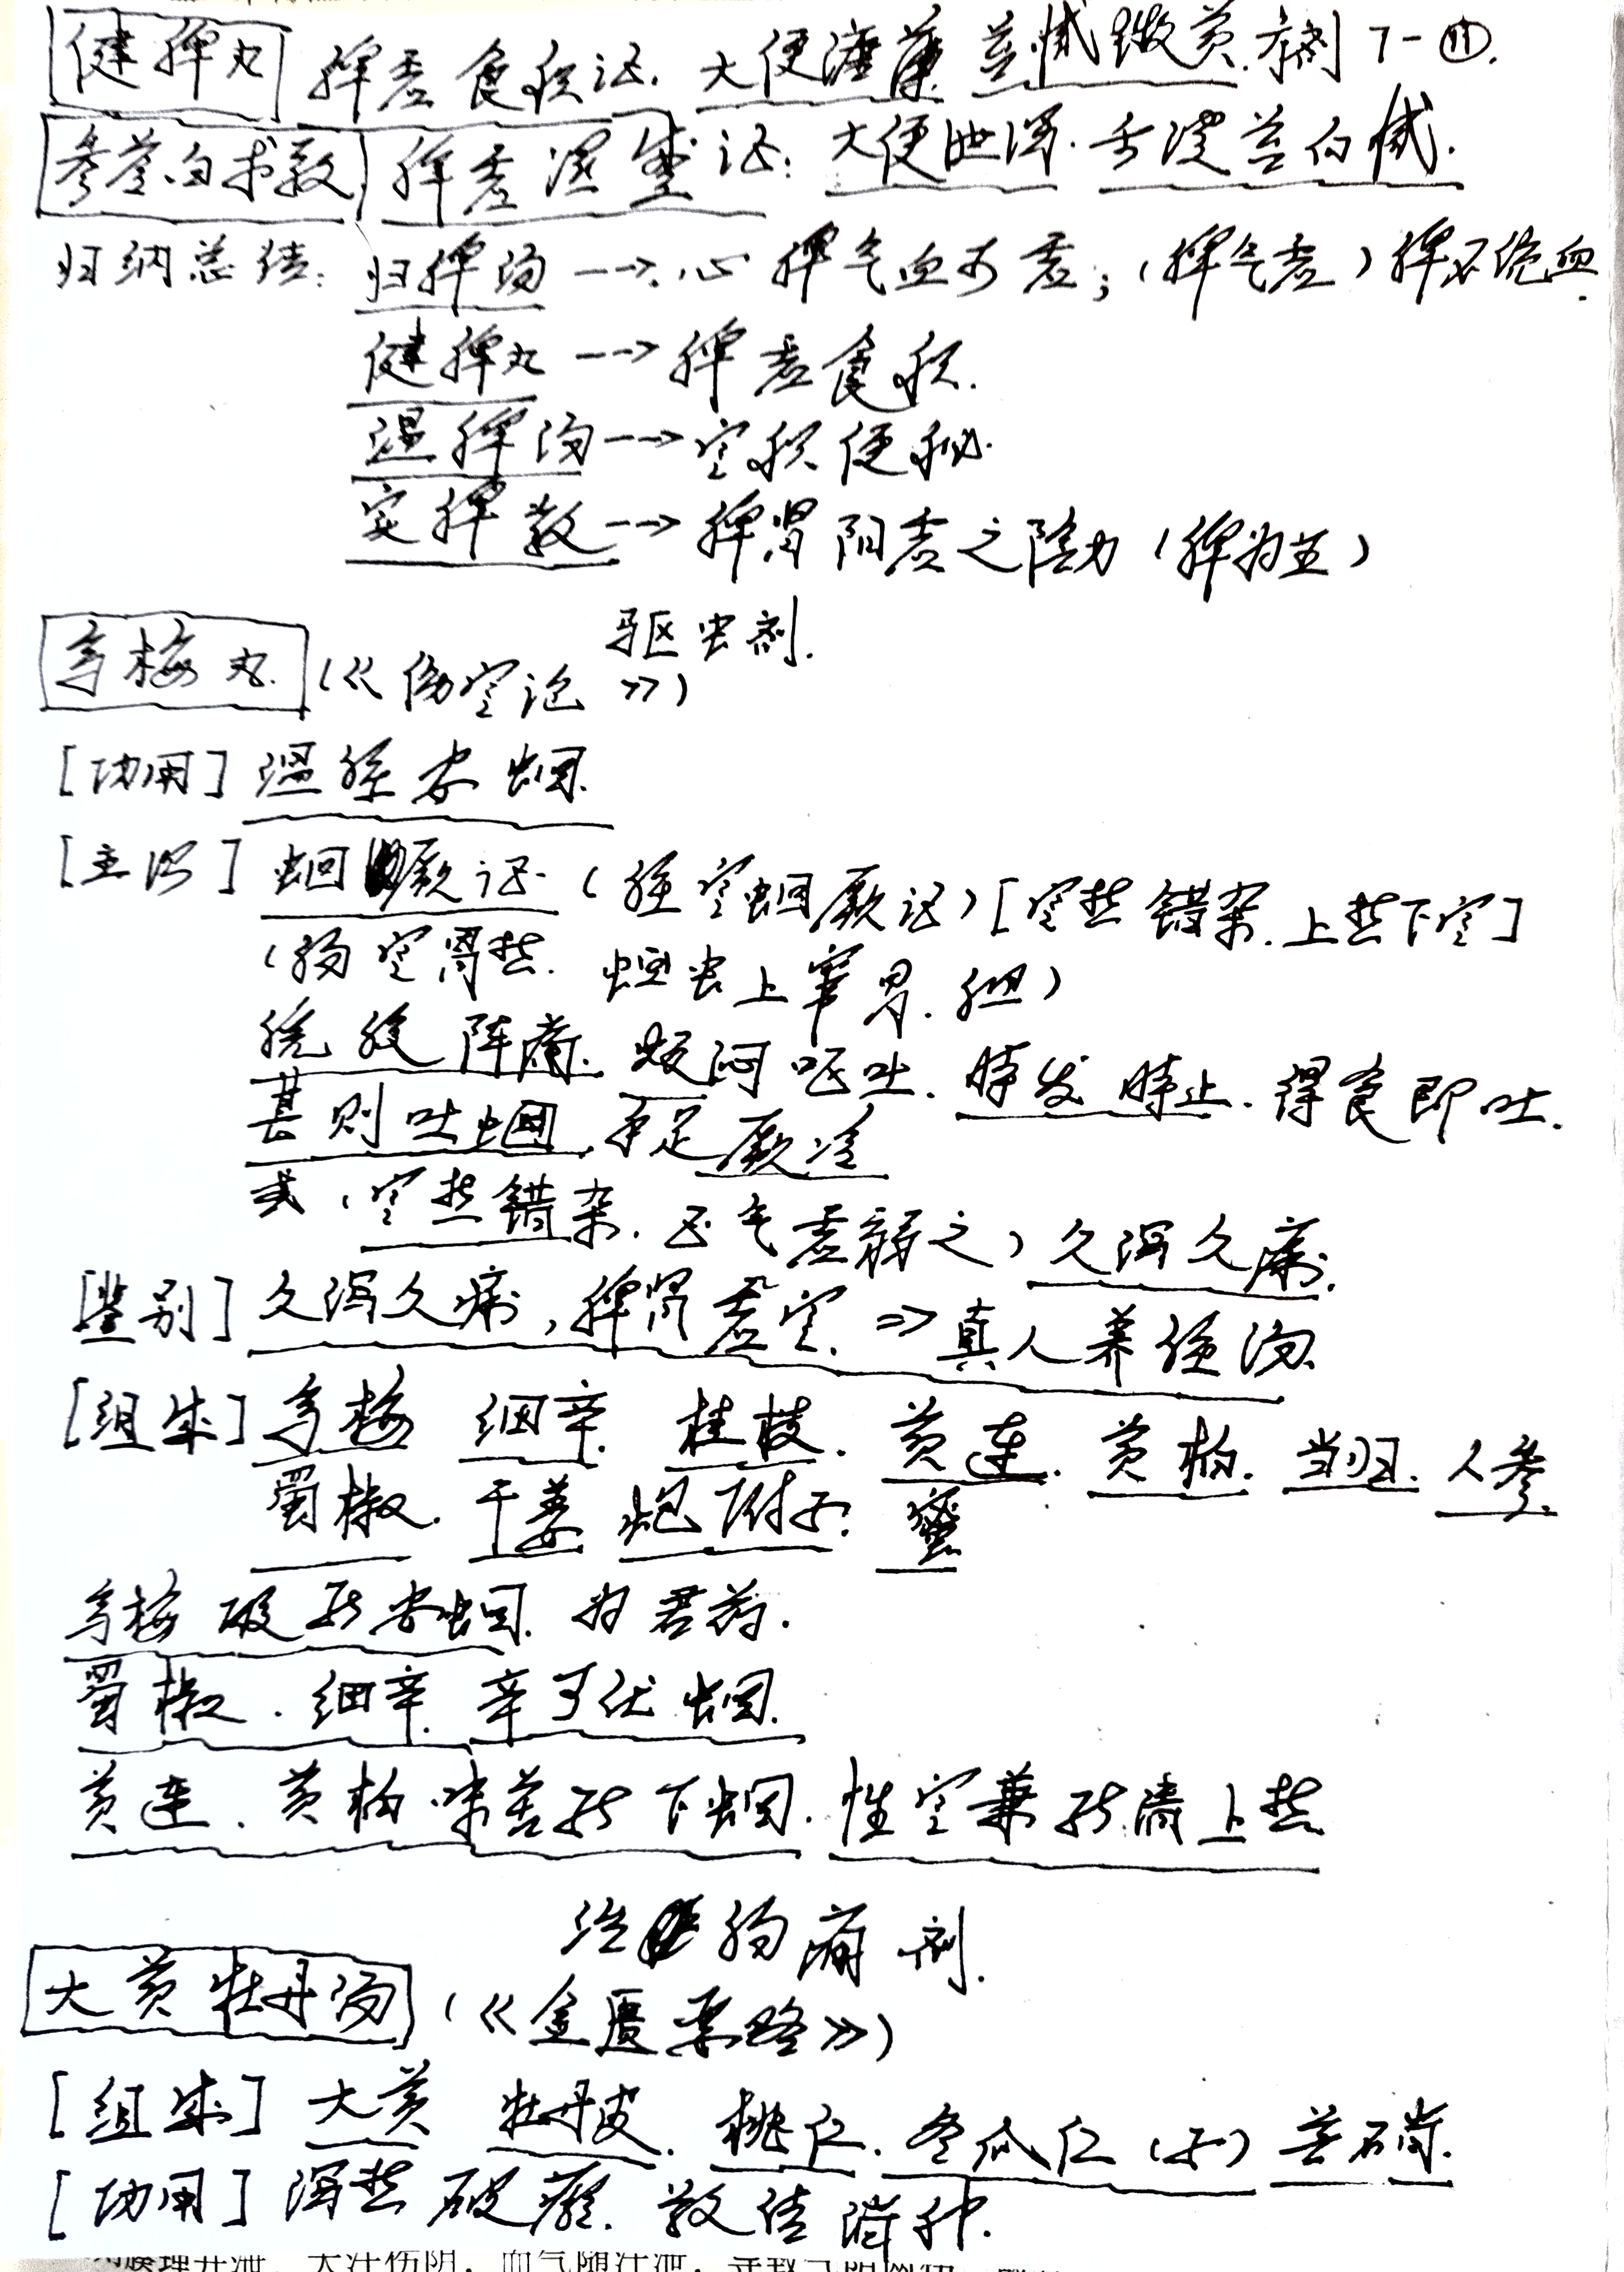 健脾丸 脾虚食积证. 大便溏薄 苔腻微黄. 方剂 7-⑪.
参苓白术散 脾虚湿盛证: 大便泄泻. 舌淡苔白腻.
归纳总结: 归脾汤 --→ 心脾气血两虚; (脾气虚) 脾不统血.
健脾丸 --→ 脾虚食积.
温脾汤 --→ 寒积便秘.
实脾散 --→ 脾肾阳虚之阴水 (脾为主)
驱虫剂.
乌梅丸. (《伤寒论》)
[功用] 温脏安蛔.
[主治] 蛔厥证. (脏寒蛔厥证) [寒热错杂. 上热下寒]
(肠寒胃热. 蛔虫上窜胃. 胆)
脘腹阵痛. 烦闷呕吐. 时发时止. 得食即吐.
甚则吐蛔, 手足厥冷
或 (寒热错杂. 正气虚弱之) 久泻久痢.
[鉴别] 久泻久痢, 脾肾虚寒. => 真人养脏汤.
[组成] 乌梅 细辛. 桂枝. 黄连. 黄柏. 当归. 人参.
蜀椒. 干姜 炮附子. 蜜
乌梅 酸能安蛔. 为君药.
蜀椒. 细辛. 辛可伏蛔.
黄连. 黄柏 味苦能下蛔. 性寒兼能清上热
治肠痈剂.
大黄牡丹汤 (《金匮要略》)
[组成] 大黄 牡丹皮. 桃仁. 冬瓜仁 (子) 芒硝.
[功用] 泻热破瘀. 散结消肿.